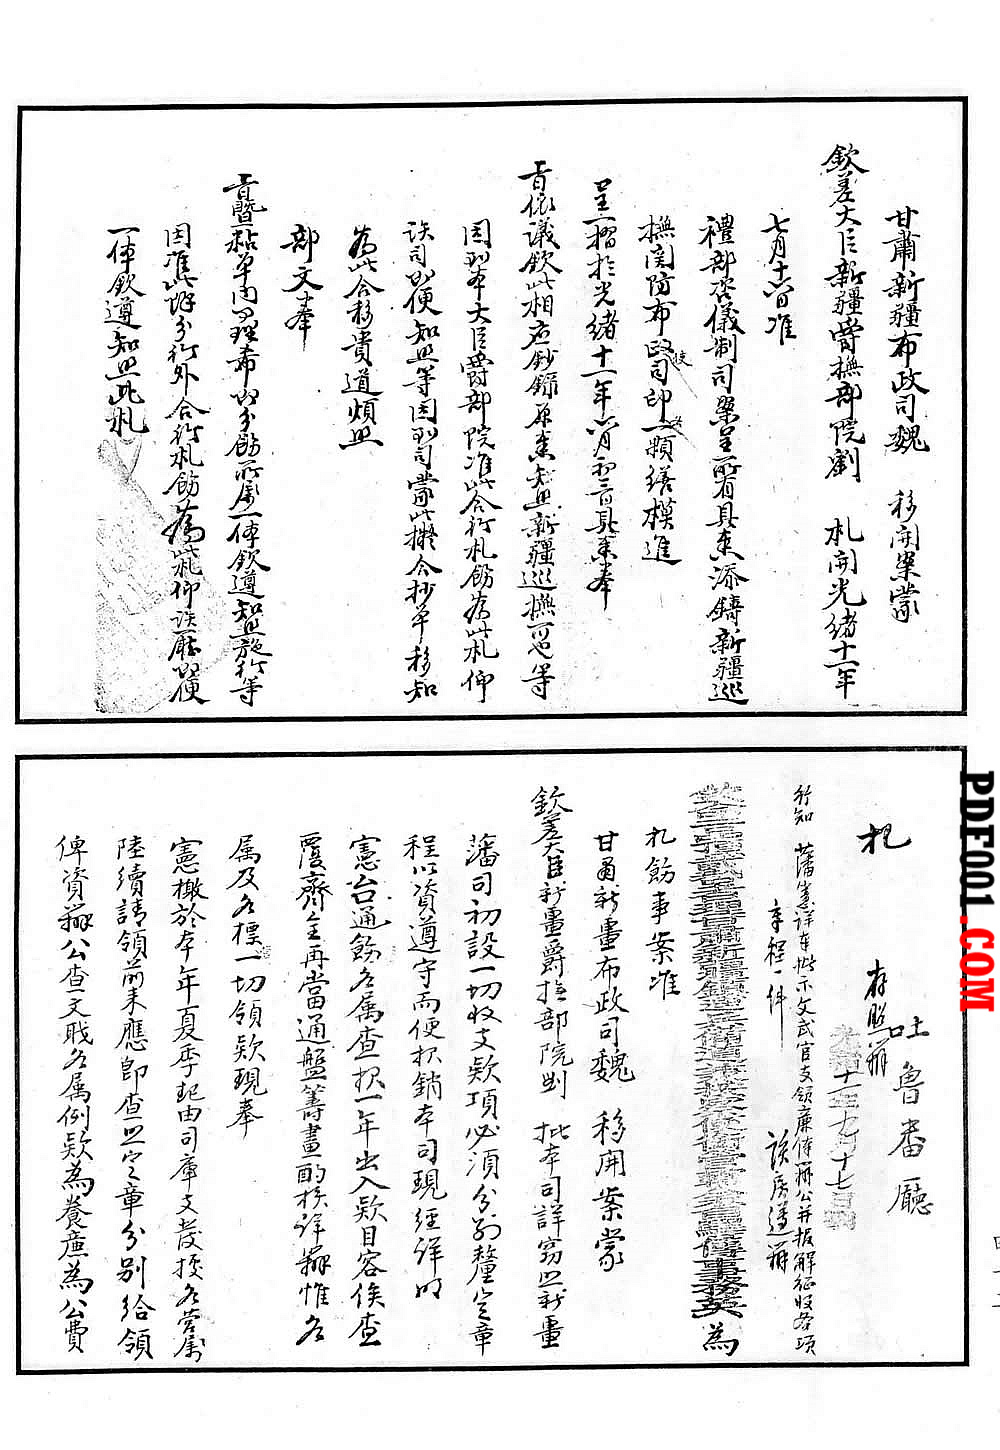 甘肅新疆布政司魏 移開案蒙
欽差大臣新疆爵撫部院劉 札開光緒十一年
七月十八日准
禮部咨儀制司案呈所有具奏添鑄新疆巡
撫関防布政司印一顆繕模進
呈一摺於光緒十一年六月初三日具奏奉
旨依議欽此相应鈔錄原奏知照新疆巡撫可也等
因到本大臣爵部院准此合行札飭為此札仰
該司即便知照等因到司蒙此擬合抄单移知
為此合移貴道煩照
部文奉
旨暨粘单内事理希即分飭所属一体欽遵知照施行等
因准此除分行外合行札飭為此札仰該廳即便
一体欽遵知照此札
札 吐魯番廳
存照辦
光緒十一年九月十七日
行知 藩憲詳奉批示文武官支領廉俸辦公并报解征收各項
章程一件 該房遵辦
為
札飭事案准
甘肅新畺布政司魏 移開案蒙
欽差大臣新畺爵撫部院劉 批本司詳竊照新畺
藩司初設一切收支欵項必須分别釐定章
程以資遵守而便报銷本司現經詳明
憲台通飭各属查报一年出入欵目容俟查
覆齊全再當通盤籌畫酌核詳辦惟各
属及各標一切領欵現奉
憲檄於本年夏季起由司庫支發按各营属
陸續請領前来應即查照定章分别给領
俾資辦公查文職各属例欵為養廉為公費
PDF001.COM